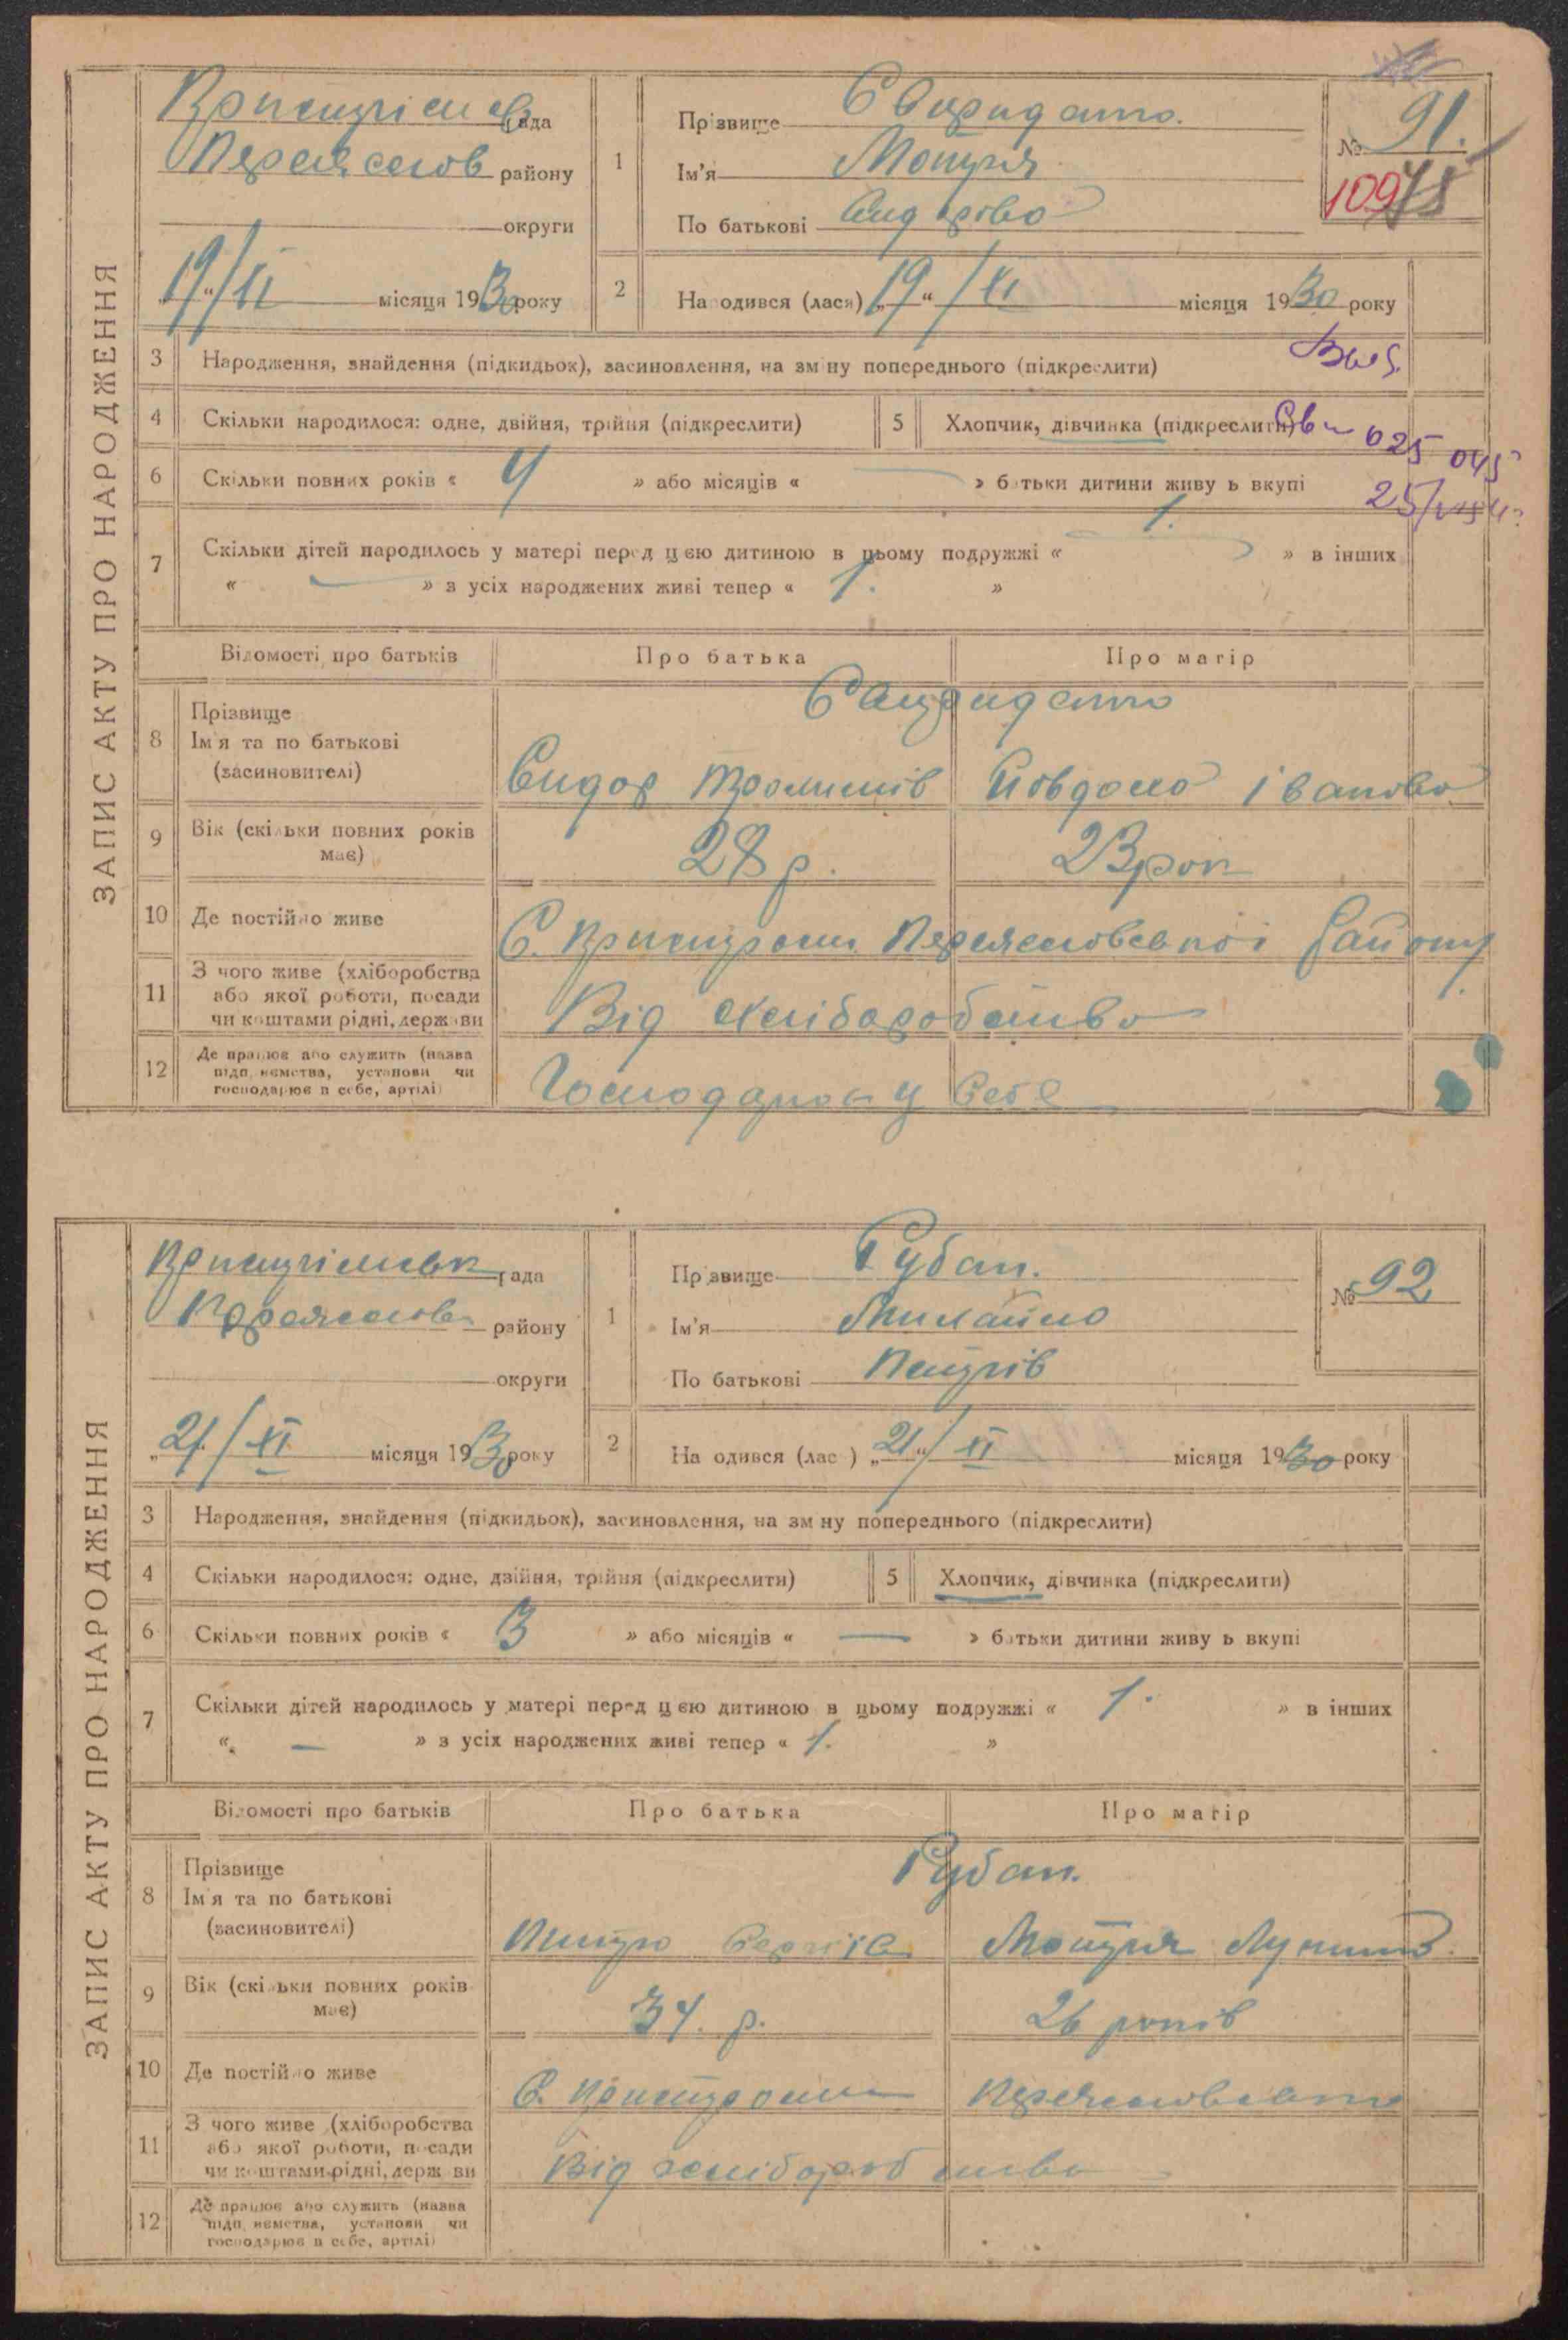 ЗАПИС АКТУ ПРО НАРОДЖЕННЯ
рада
району
округи
19/XI місяця 1930 року
1 Прізвище
Ім'я Мотуря
По батькові
№ 91.
109
2 Народився (лася) „19“ / XI місяця 1930 року
3 Народження, знайдення (підкидьок), засиновлення, на зміну попереднього (підкреслити)
4 Скільки народилося: одне, двійня, трійня (підкреслити)
5 Хлопчик, дівчинка (підкреслити)
025 045
6 Скільки повних років « 4 » або місяців « — » батьки дитини живуть вкупі
7 Скільки дітей народилось у матері перед цією дитиною в цьому подружжі « 1. » в інших
« — » з усіх народжених живі тепер « 1. »
Відомості про батьків
Про батька
Про матір
8 Прізвище
Ім'я та по батькові
(засиновителі)
Сидор
Івановна
9 Вік (скільки повних років має)
28 р.
23 рок
10 Де постійно живе
С.
Району
11 З чого живе (хліборобства або якої роботи, посади чи коштами рідні, держави
Від хліборобства
12 Де працює або служить (назва підприємства, установи чи господарює в себе, артілі)
у себе
ЗАПИС АКТУ ПРО НАРОДЖЕННЯ
рада
району
округи
„21./XI місяця 1930 року
1 Прізвище Рубан.
Ім'я Михайло
По батькові Петрів
№ 92
2 Народився (лас ) „21“ / XI місяця 1930 року
3 Народження, знайдення (підкидьок), засиновлення, на зміну попереднього (підкреслити)
4 Скільки народилося: одне, двійня, трійня (підкреслити)
5 Хлопчик, дівчинка (підкреслити)
6 Скільки повних років « 3 » або місяців « — » батьки дитини живуть вкупі
7 Скільки дітей народилось у матері перед цією дитиною в цьому подружжі « 1. » в інших
« — » з усіх народжених живі тепер « 1. »
Відомості про батьків
Про батька
Про матір
8 Прізвище
Ім'я та по батькові
(засиновителі)
Рубан.
Петро Сергіїв
Мотуря
9 Вік (скільки повних років має)
34. р.
26 років
10 Де постійно живе
С.
11 З чого живе (хліборобства або якої роботи, посади чи коштами рідні, держави
Від хліборобства
12 Де працює або служить (назва підприємства, установи чи господарює в себе, артілі)